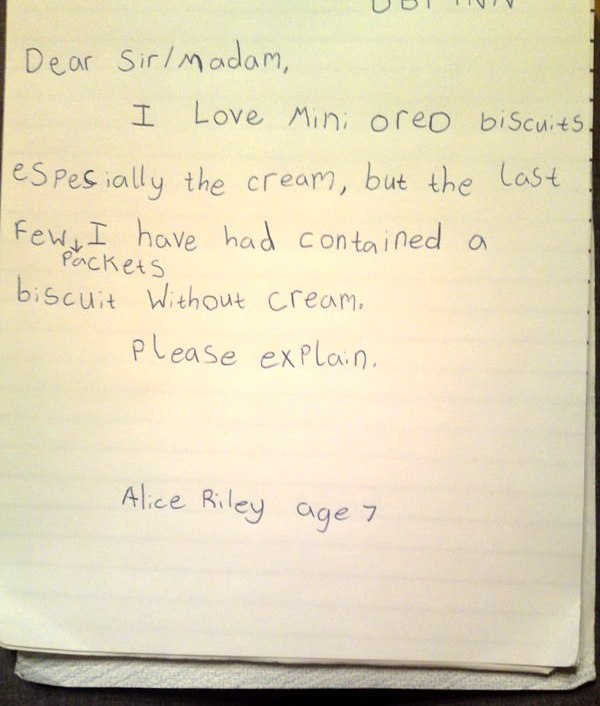 Dear Sir/Madam,
I Love Mini oreo biscuits
espesially the cream, but the last
Few I have had contained a
Packets
biscuit Without cream.
Please explain.
Alice Riley age 7